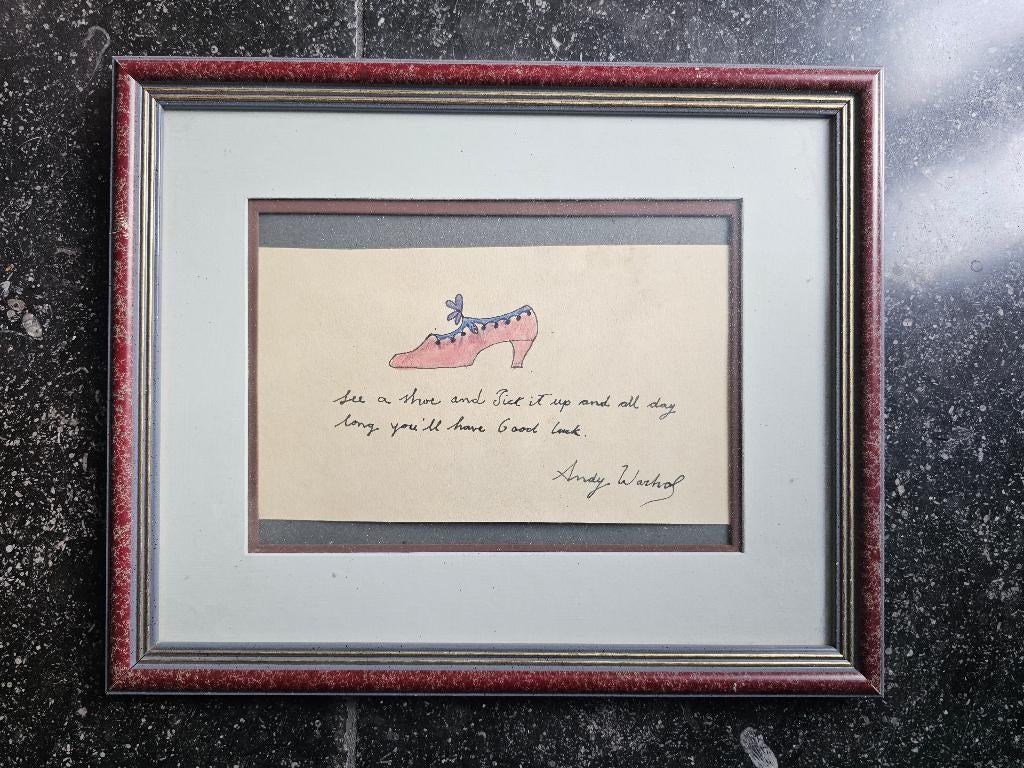 See a shoe and Pick it up and all day
long you'll have Good luck.
Andy Warhol